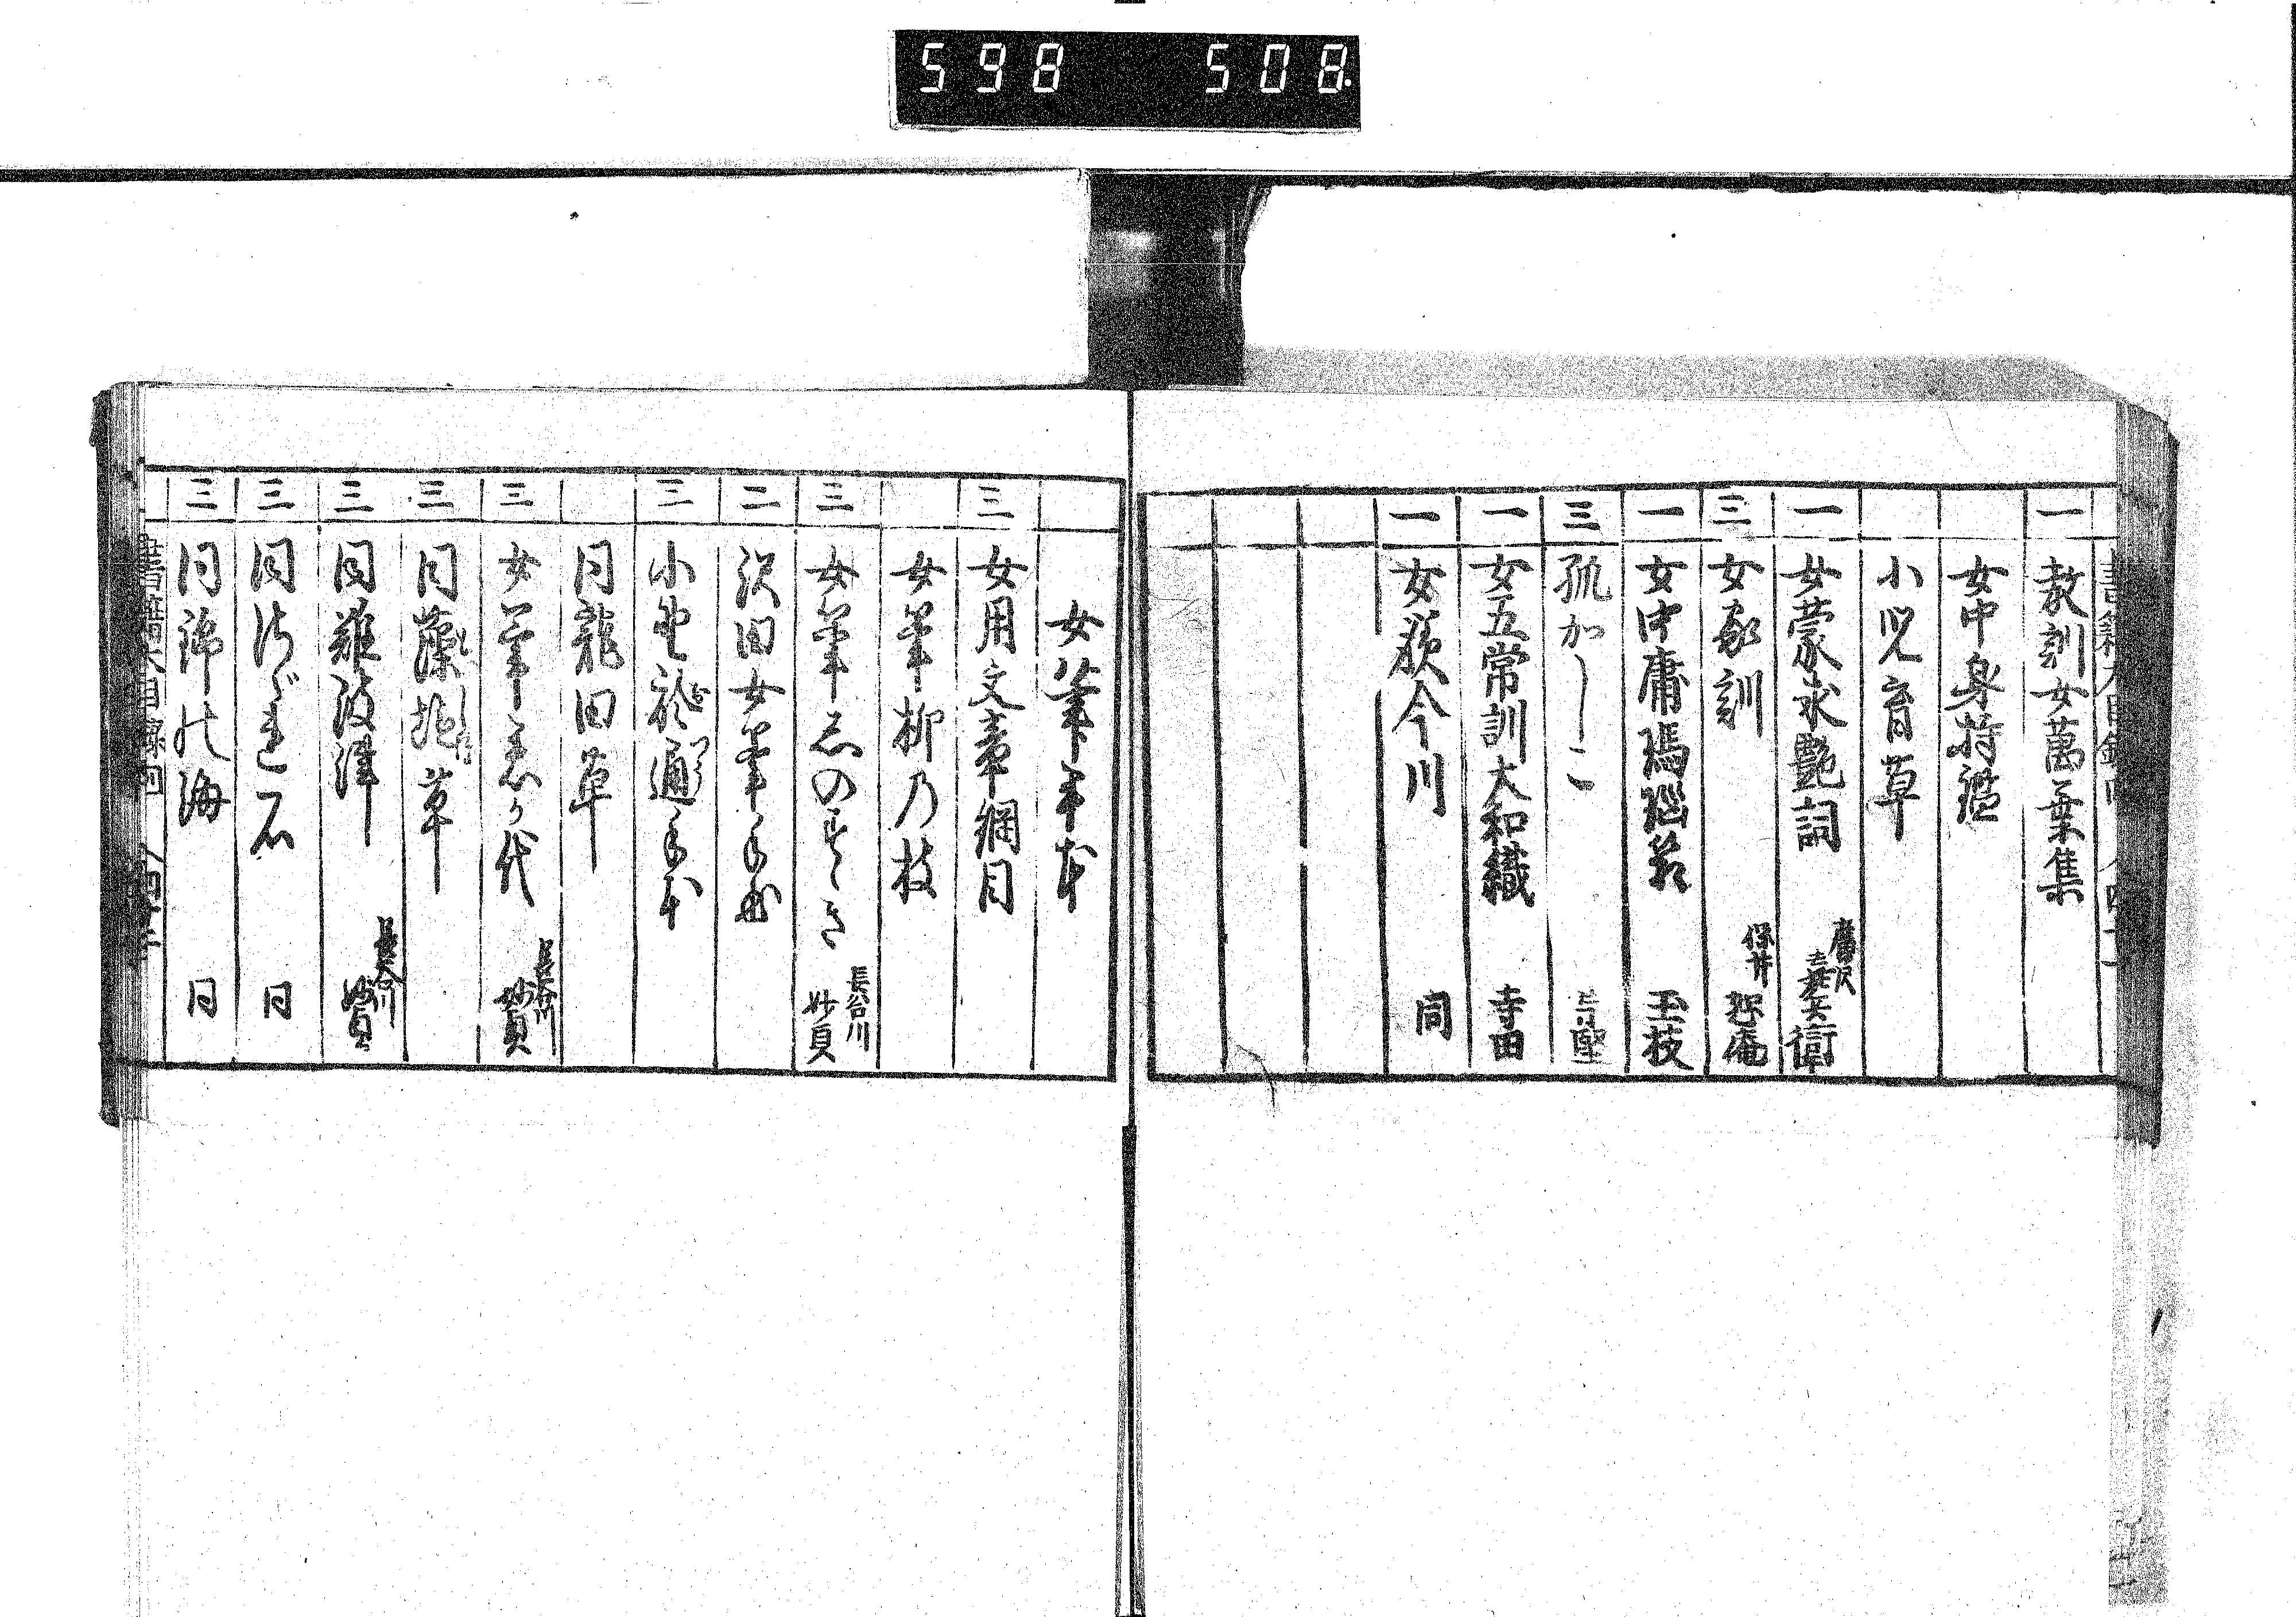 598 508
一 教訓女萬葉集
女中身持鑑
小児育草
一 女蒙求艶詞 鷹沢 嘉兵衛
三 女家訓 保井 恕庵
一 女中庸瑪瑙箱 玉枝
三 孤かしこ
一 女五常訓大和織 寺田
一 女孩今川 同
女筆手本
三 女用文章綱目
女筆柳乃枝
三 女筆志のすゝき 長谷川 妙貞
二 沢田女筆手本
三 小野於通手本
同龍田草
三 女筆春 代 長谷川 妙貞
三 同藻塩草
三 同難波津 長谷川 妙貞
三 同 石 同
三 同錦の海 同
書籍大目録四